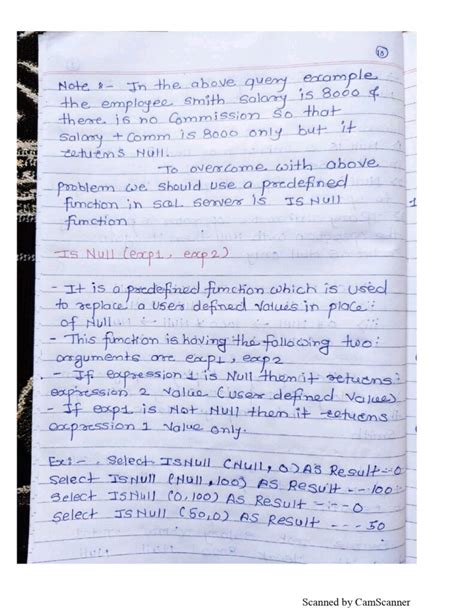 18
Note :- In the above query example
the employee smith salary is 8000 &
there is no Commission so that
salary + Comm is 8000 only but it
returns Null.
To overcome with above
problem we should use a predefined
function in SQL server is IS NUll
function
Is Null (exp1, exp2)
- It is a predefined function which is used
to replace a user defined values in place
of Null
- This function is having the following two
arguments are exp1, exp2
- If expression 1 is Null then it returns
expression 2 value (user defined values)
- If exp1 is Not NUll then it returns
expression 1 value only.
Ex:- Select ISNull (Null, 0) AS Result--0
Select ISNUll (NUll, 100) AS Result ---100
Select ISNUll (0, 100) AS Result ----0
Select ISNUll (50, 0) AS Result ---50
Scanned by CamScanner